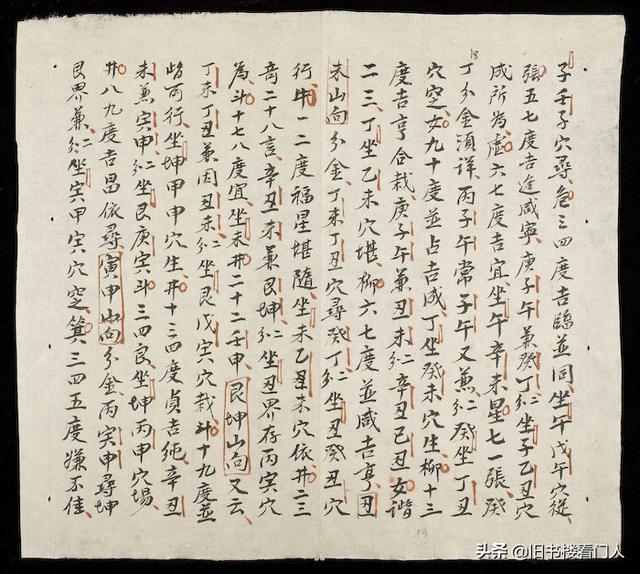 子壬子穴尋危三四度吉臨並同坐午戊午穴從
張五七度吉逢咸寧庚子午兼癸丁仁坐子乙丑穴
咸所为虚六七度吉宜坐午辛未星七一張癸
丁分金須詳丙子午常子午又兼仁癸坐丁丑
穴定女九十度並占吉咸丁坐癸未穴生柳十三
度吉亨合栽庚子午兼丑未仁辛丑己丑女諧
二三丁坐乙未穴堪柳六七度並咸吉亨丑
未山向分金丁未丁丑穴尋癸丁仁坐丑癸丑穴
行牛一二度福星堪隨坐未乙丑未穴依井二三
奇二十八言辛丑未兼艮坤仁坐丑界存丙寅穴
為斗十七八度宜坐未井二十二壬申艮坤山向又云
丁未丁丑兼因丑未仁坐艮戊寅穴栽斗十九度並
皆可行坐坤甲申穴生井十三四度貞吉純辛丑
未兼寅申仁坐艮庚寅斗三四良坐坤丙申穴場
井八九度吉昌依尋寅申山向分金丙寅申尋坤
艮界兼仁坐寅甲寅穴定箕三四五度嫌不佳
18
19
头条@旧书楼看门人